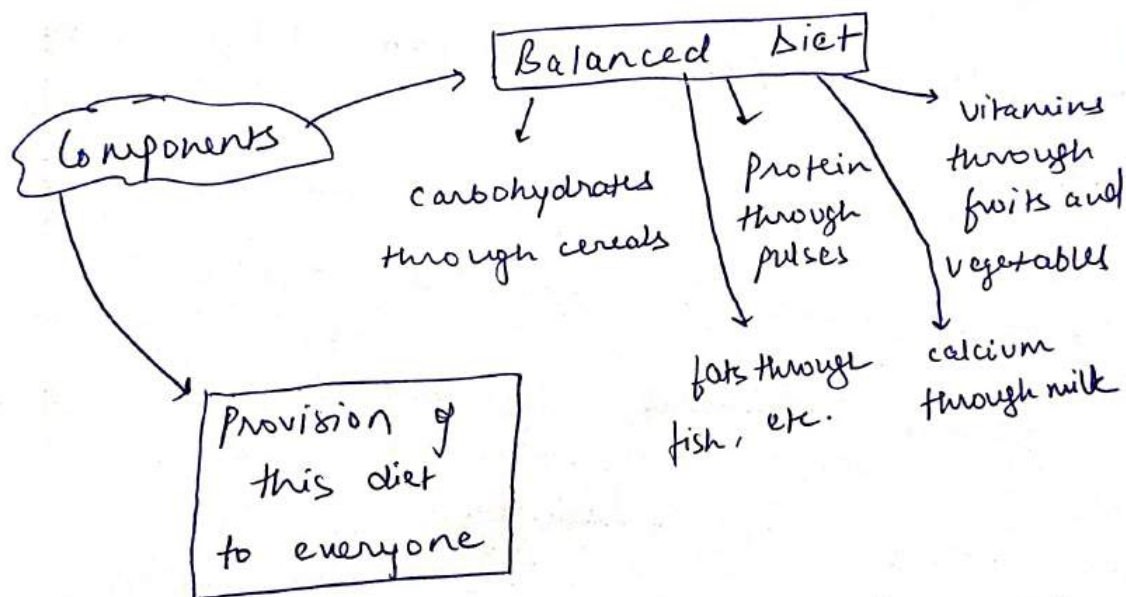 Balanced Diet
Components
carbohydrates
through cereals
Protein
through
pulses
vitamins
through
fruits and
vegetables
fats through
fish, etc.
calcium
through milk
Provision of
this diet
to everyone